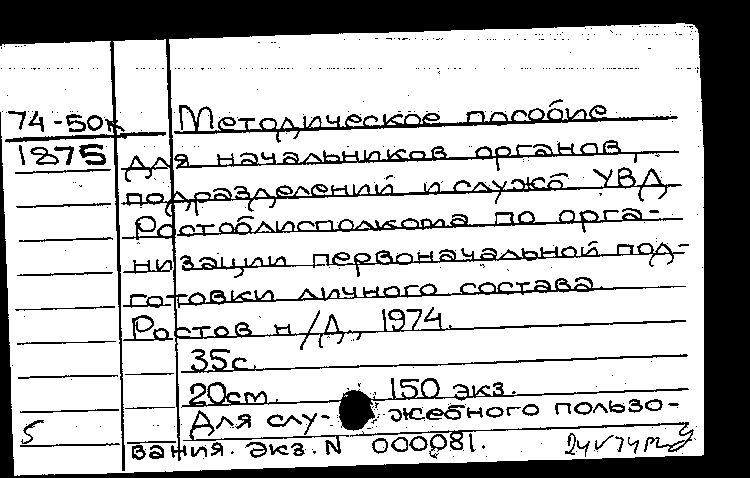 74-50к Методическое пособие
1875 для начальников органов,
подразделений и служб УВД
Ростоблисполкома по орга-
низации первоначальной под-
готовки личного состава.
Ростов н/Д., 1974.
35с.
20см. 150 экз.
Для слу- жебного пользо-
5
вания. Экз. N 000081.